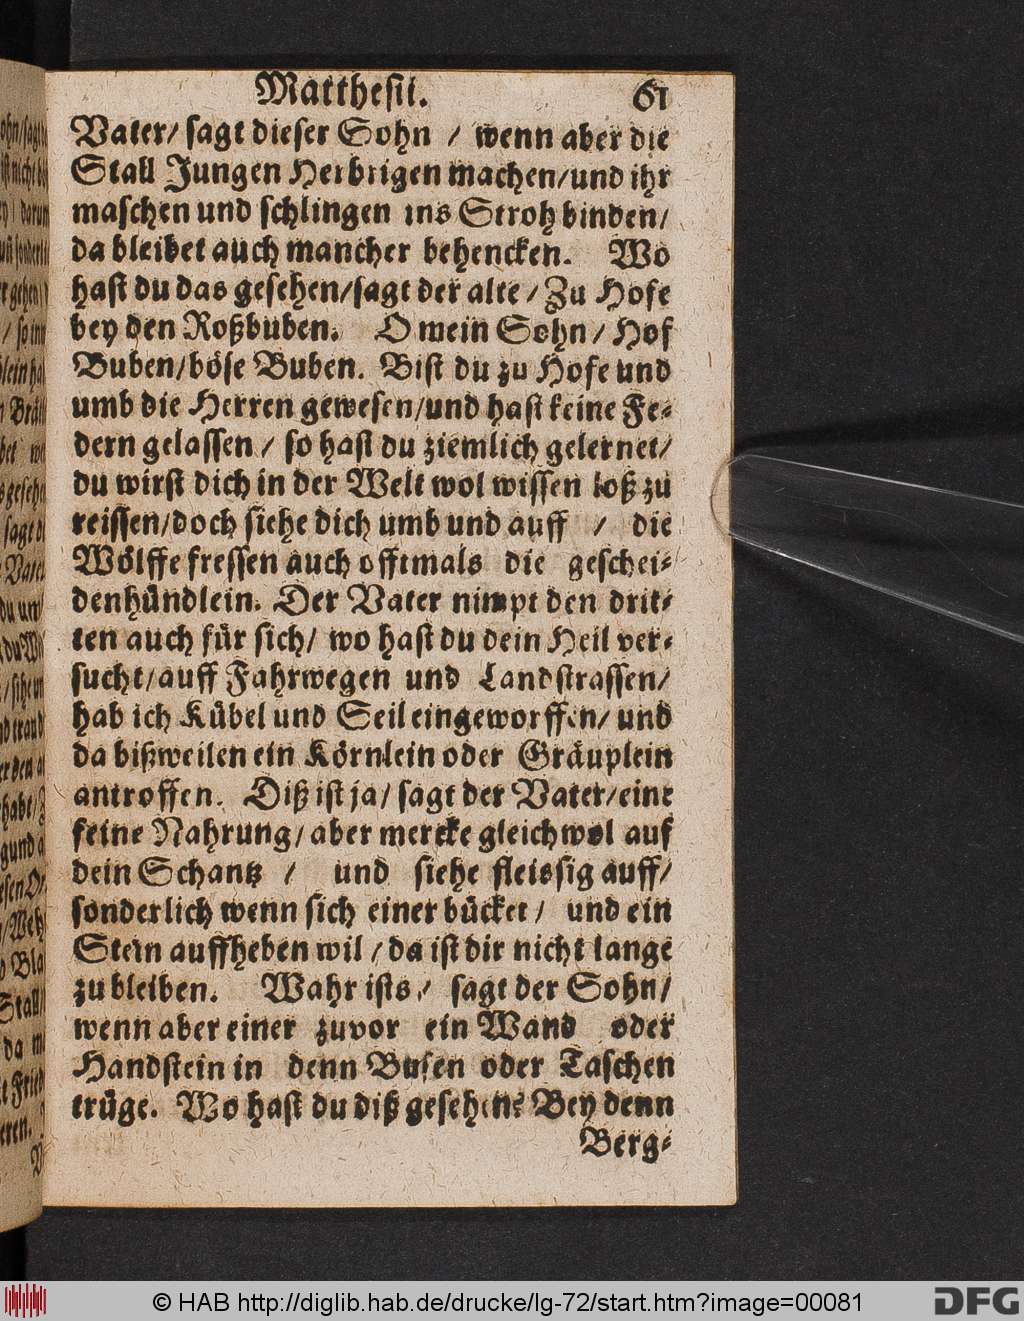 Matthesii. 61
Vater/ sagt dieser Sohn / wenn aber die
Stall Jungen Herbrigen machen/und ihr
maschen und schlingen ins Stroh binden/
da bleibet auch mancher behencken. Wo
hast du das gesehen/sagt der alte / Zu Hofe
bey den Roßbuben. O mein Sohn / Hof
Buben/böse Buben. Bist du zu Hofe und
umb die Herren gewesen/und hast keine Fe-
dern gelassen / so hast du ziemlich gelernet/
du wirst dich in der Welt wol wissen loß zu
reissen/doch siehe dich umb und auff / die
Wölffe fressen auch offtmals die geschei-
denhündlein. Der Vater nimpt den drit-
ten auch für sich/ wo hast du dein Heil ver-
sucht/auff Fahrwegen und Landstrassen/
hab ich Kübel und Seil eingeworffen/ und
da bißweilen ein Körnlein oder Gräuplein
antroffen. Diß ist ja/ sagt der Vater/eine
feine Nahrung/ aber mercke gleichwol auf
dein Schantz / und siehe fleissig auff/
sonderlich wenn sich einer bücket / und ein
Stein auffheben wil / da ist dir nicht lange
zu bleiben. Wahr ists / sagt der Sohn/
wenn aber einer zuvor ein Wand oder
Handstein in denn Busen oder Taschen
trüge. Wo hast du diß gesehen? Bey denn
Berg-
© HAB http://diglib.hab.de/drucke/lg-72/start.htm?image=00081
DFG